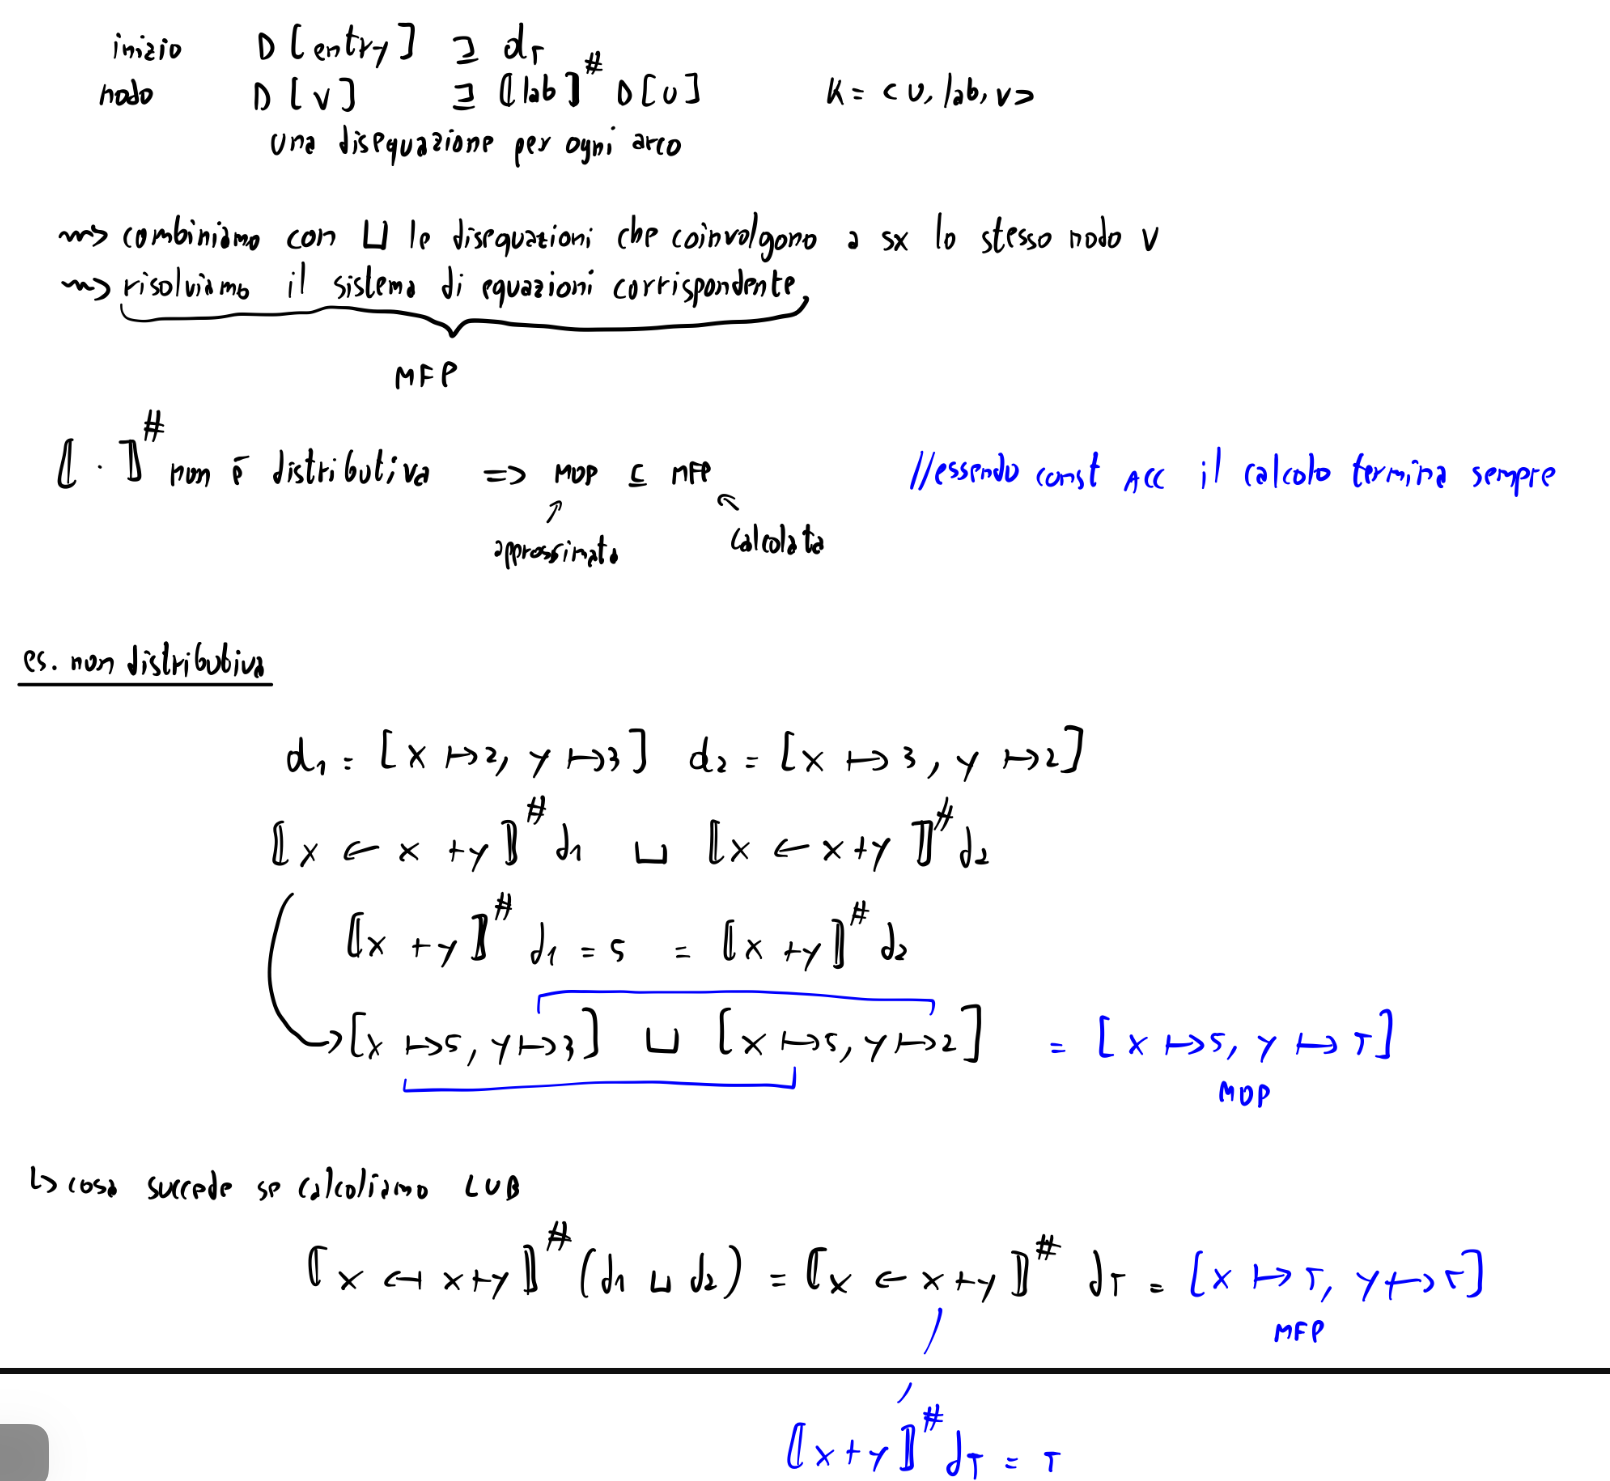 inizio D[entry] ⊒ d⊤
nodo D[v] ⊒ ⟦lab⟧# D[u] K = <u, lab, v>
una disequazione per ogni arco
~> combiniamo con ⊔ le disequazioni che coinvolgono a sx lo stesso nodo v
~> risolviamo il sistema di equazioni corrispondente,
MFP
⟦·⟧# non è distributiva => MOP ⊑ MFP //essendo const ACC il calcolo termina sempre
approssimata calcolata
es. non distributiva
d1 = [x ↦ 2, y ↦ 3] d2 = [x ↦ 3, y ↦ 2]
⟦x ← x + y⟧# d1 ⊔ ⟦x ← x + y⟧# d2
⟦x + y⟧# d1 = 5 = ⟦x + y⟧# d2
→ [x ↦ 5, y ↦ 3] ⊔ [x ↦ 5, y ↦ 2] = [x ↦ 5, y ↦ ⊤]
MOP
↳ cosa succede se calcoliamo LUB
⟦x ← x + y⟧# (d1 ⊔ d2) = ⟦x ← x + y⟧# d⊤ = [x ↦ ⊤, y ↦ ⊤]
MFP
⟦x + y⟧# d⊤ = ⊤